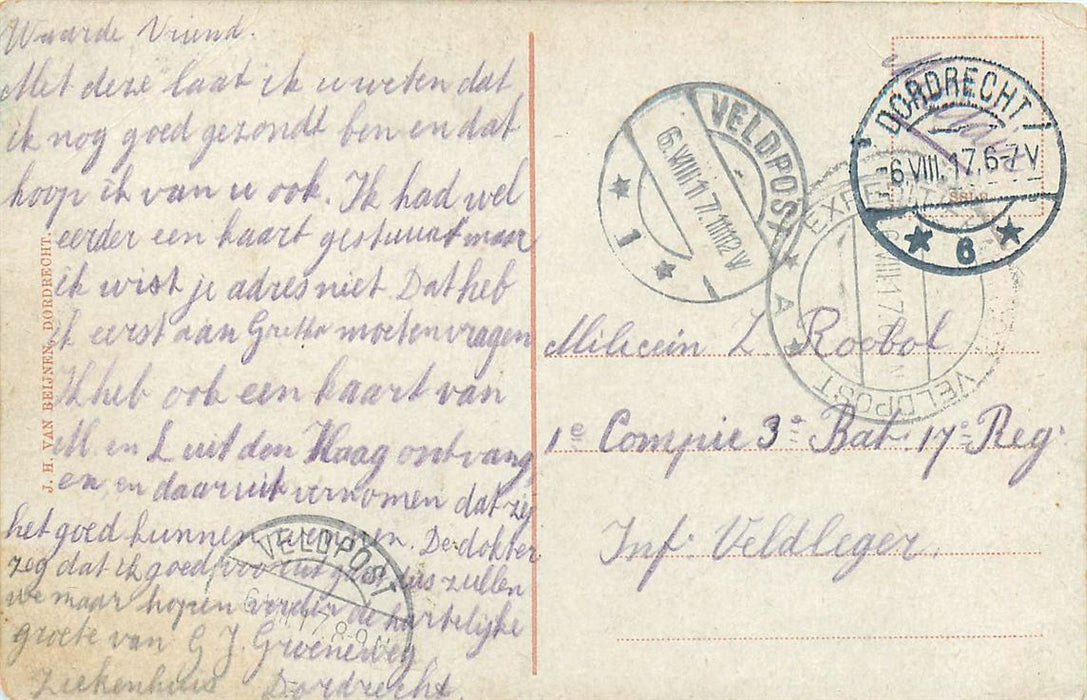 Waarde Vriend.
Met deze laat ik u weten dat
ik nog goed gezondt ben en dat
hoop ik van u ook. Ik had wel
eerder een kaart gestuurt maar
ik wist je adres niet Dat heb
ik eerst aan Gretha moeten vragen
Ik heb ook een kaart van
M en L uit den Haag ontvang
en en daaruit vernomen dat zij
het goed kunnen wennen. De dokter
zeg dat ik goed vooruit gaat dus zullen
we maar hopen verder de hartelijke
groete van G J. Groeneweg
Ziekenhuis Dordrecht.
J. H. VAN BEIJNEN, DORDRECHT.
VELDPOST
6.VIII.17.11-12V
1
DORDRECHT
6.VIII.17.6-7V
6
VELDPOST
A
VELDPOST
Milicien L. Roobol
1e Compie 3e Bat. 17e Reg.
Inf. Veldleger.